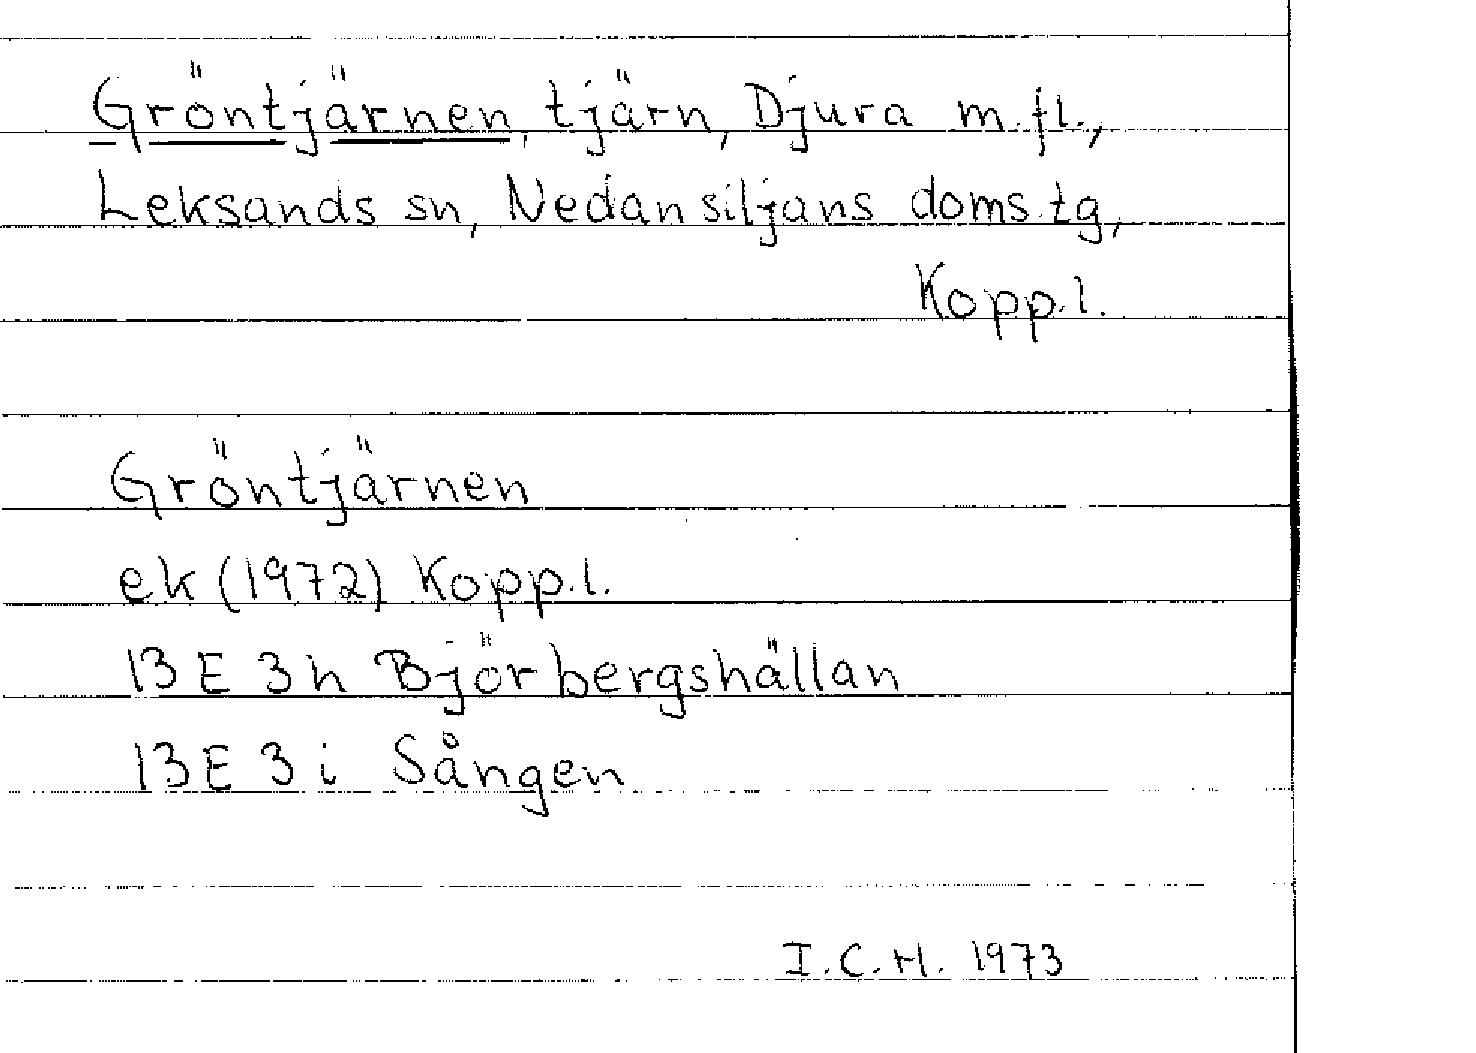 Gröntjärnen, tjärn, Djura m.fl.,
Leksands sn, Nedansiljans doms.tg,
Kopp.l.
Gröntjärnen
ek (1972) Kopp.l.
13 E 3h Björbergshällan
13 E 3 i Sången
I.C.H. 1973